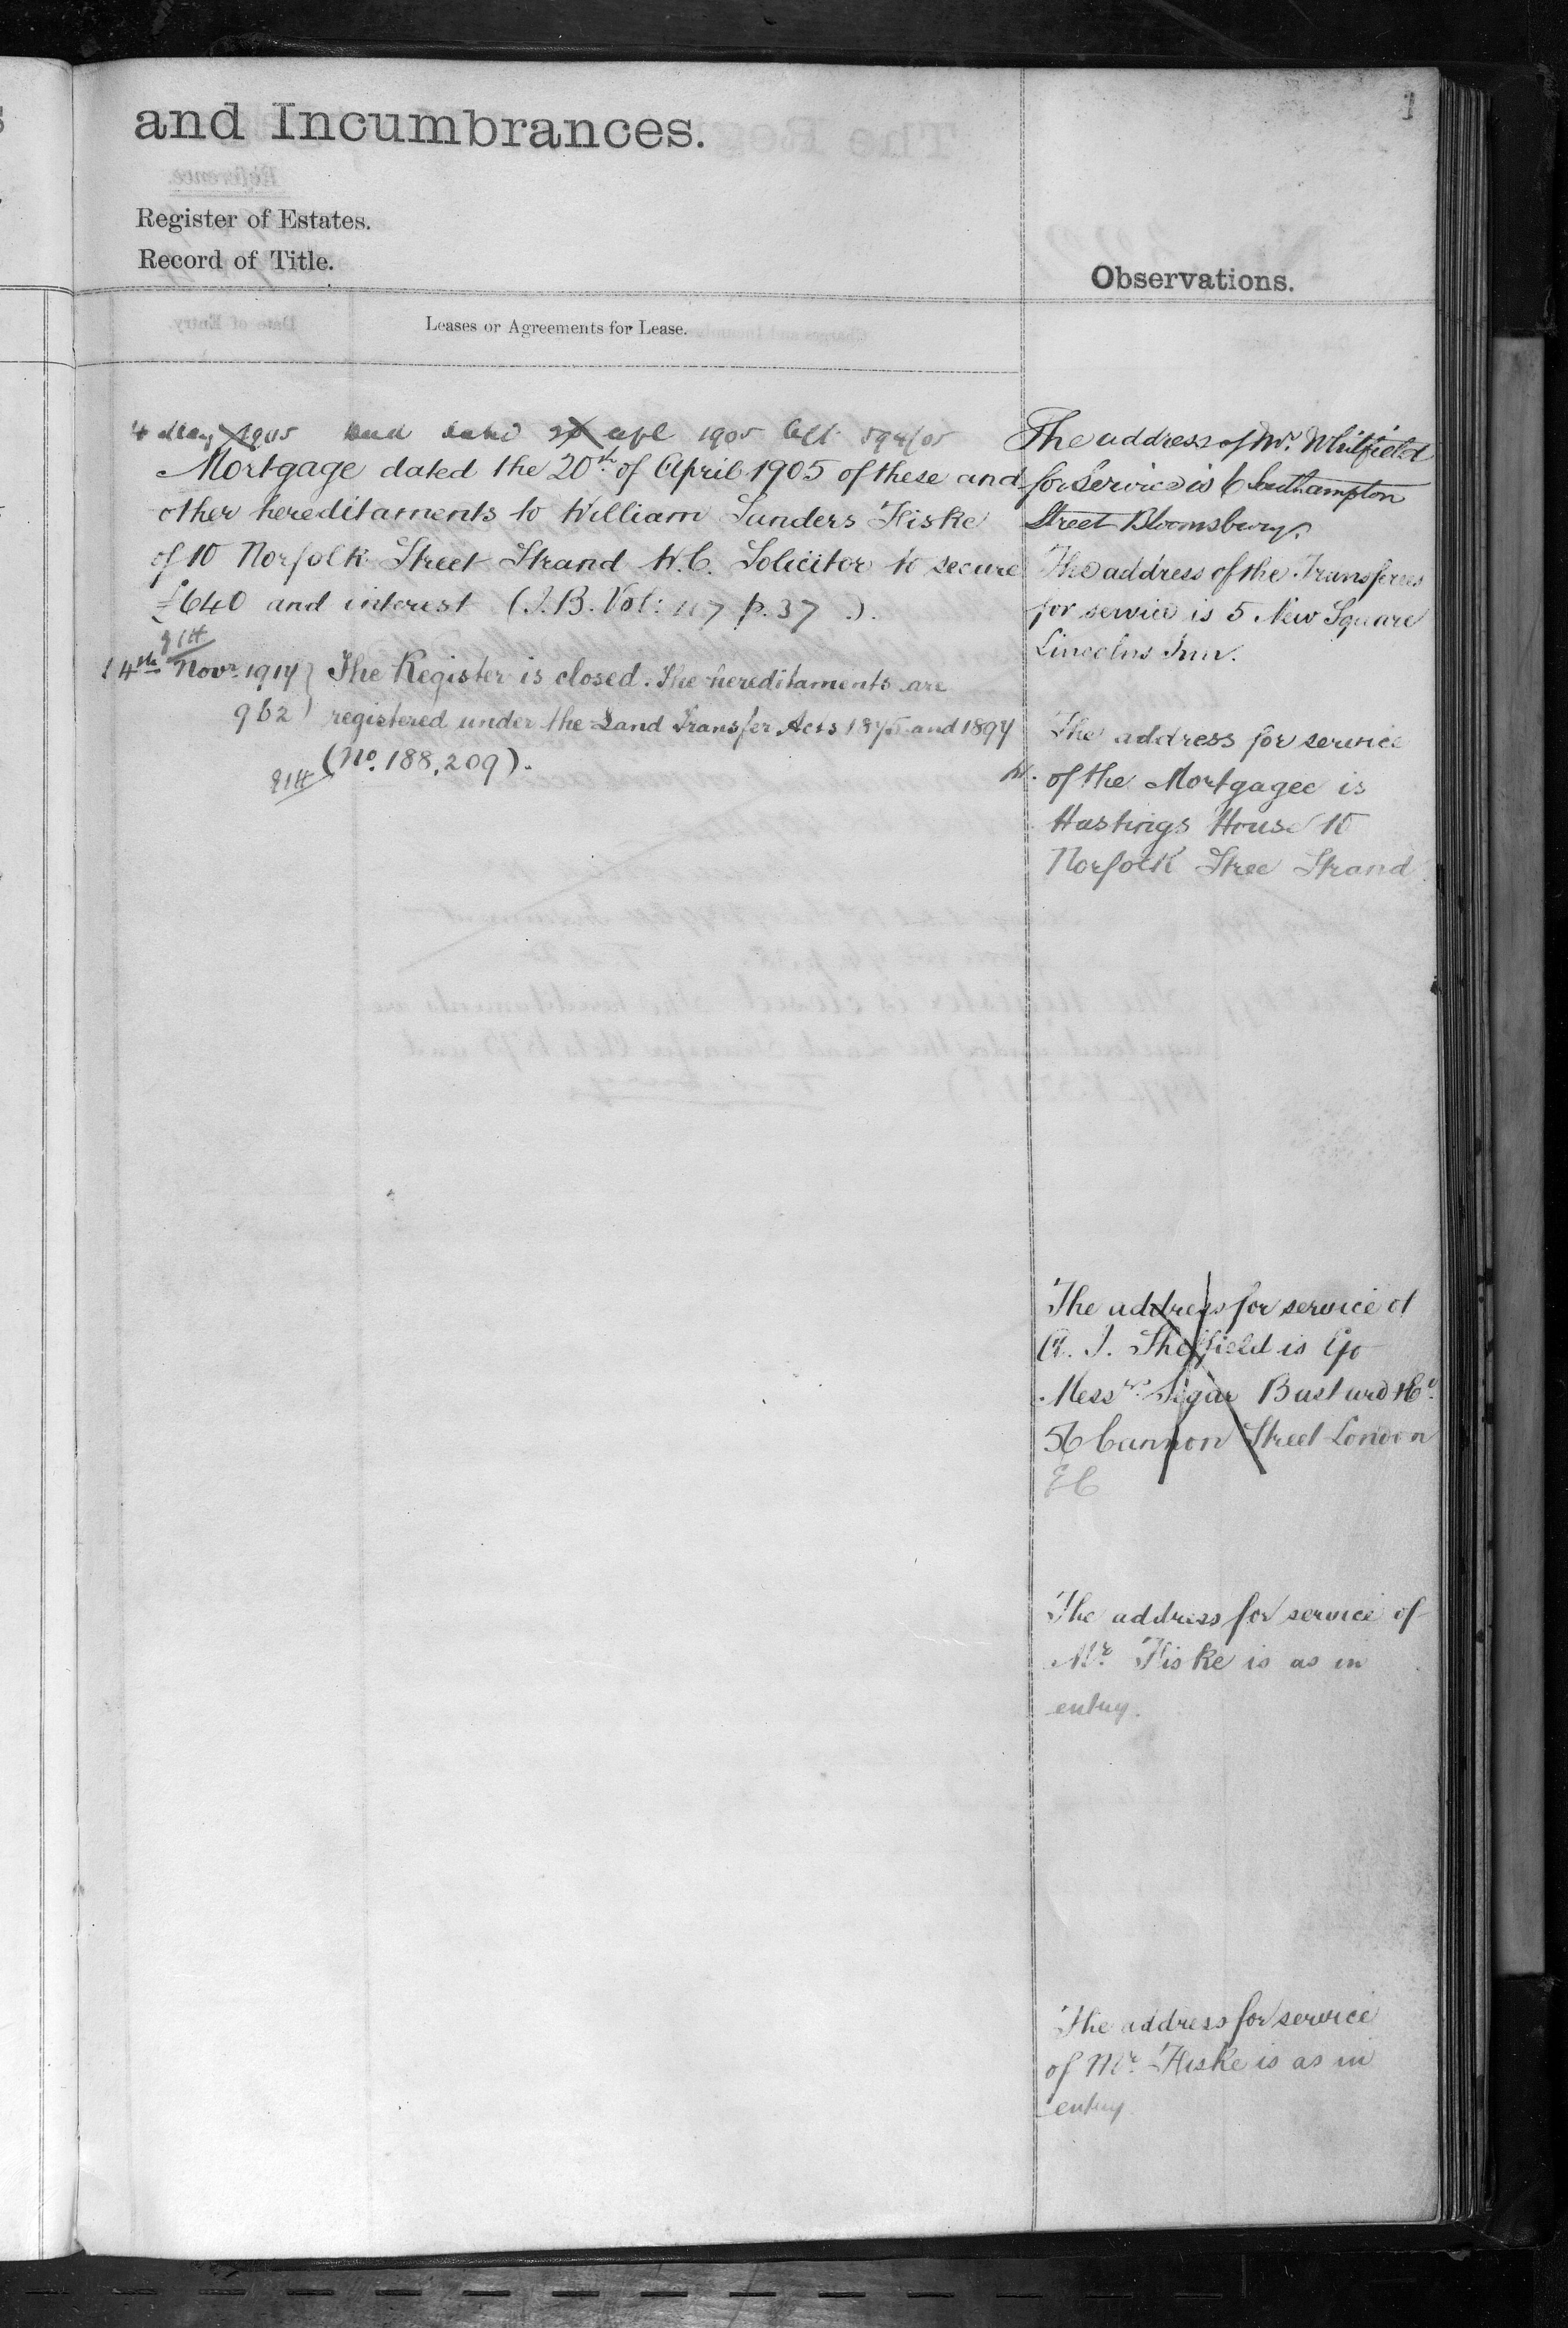 and Incumbrances.
1
Register of Estates.
Record of Title.
Observations.
Leases or Agreements for Lease.
4 May 1905 dated 20 apl 1905 594/05
Mortgage dated the 20th of April 1905 of these and
other hereditaments to William Sunders Fiske
of 10 Norfolk Street Strand W.C. Solicitor to secure
£640 and interest (I.B. Vol: 117 p. 37 ).
14th Novr 1914 } The Register is closed. The hereditaments are
962 registered under the Land Transfer Acts 1875 and 1897
(No. 188,209).
The address of Mr. Whitfield
for Service is 6 Southampton
Street Bloomsbury.
The address of the Transferees
for service is 5 New Square
Lincolns Inn.
The address for service
of the Mortgagee is
Hastings House 10
Norfolk Stree Strand
The address for service of
J. Sheffield is C/o
Messrs. Segar Bastard & Co.
56 Cannon Street London
EC
The address for service of
Mr. Fiske is as in
entry.
The address for service
of Mr. Fiske is as in
entry